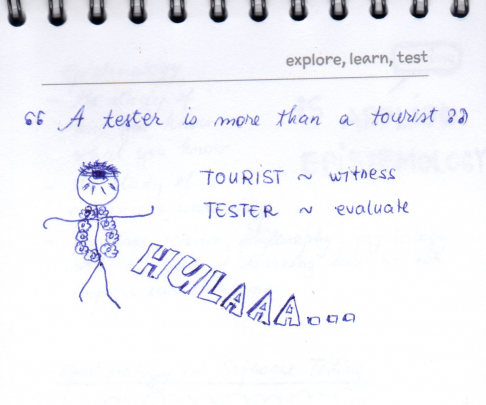 explore, learn, test
“ A tester is more than a tourist ”
TOURIST ~ witness
TESTER ~ evaluate
HULAAA...